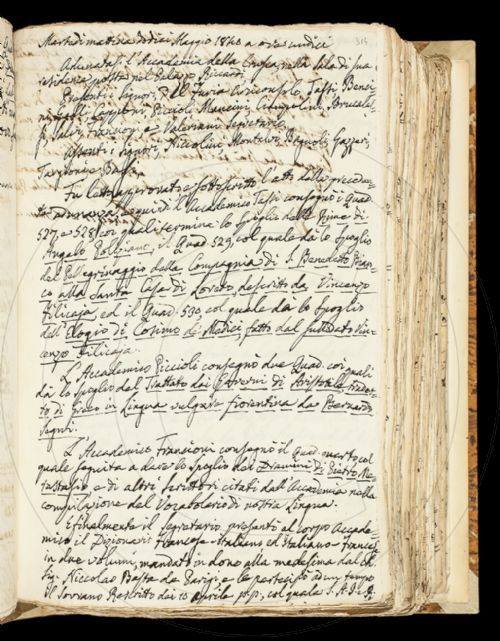 Martedi mattina dodici Maggio 1840 a ore undici
314
Adunatasi l'Accademia della Crusca nella Sala di sua
residenza posta nel Palazzo Riccardi
Presenti i Signori, Del Furia Arciconsolo, Tassi, Benci-
ni, Capponi, Piccioli, Mancini,
Salvi, Franzioni, e Valeriani Segretario.
Assenti i Signori, Niccolini, Montalvi, Bagnoli, Gazzeri,
Targioni,
Fu letto approvato e sottoscritto l'atto della preceden-
te adunanza, e quindi l'Accademico Tassi consegnò i Quad.
527, e 528 coi quali termina lo Spoglio delle Rime di
Angelo Poliziano, il Quad. 529, col quale dà lo Spoglio
del Pellegrinaggio della Compagnia di S. Benedetto Bian-
co alla Santa Casa di Loreto descritto da Vincenzo
Filicaja, ed il Quad. 530, col quale dà lo Spoglio
dell'Elogio di Cosimo de' Medici, fatto dal suddetto Vin-
cenzo Filicaja.
L'Accademico Piccioli consegnò due Quad. coi quali
dà lo spoglio del Trattato dei Governi di Aristotile, tradot-
to di Greco in Lingua vulgare fiorentina da Bernardo
Segni.
L'Accademico Franzioni consegnò il Quad. quarto col
quale seguita a dare lo Spoglio dei Drammi di Pietro Me-
tastasio e di altri Scrittori citati dall'Accademia nella
compilazione del Vocabolario di nostra Lingua.
E finalmente il Segretario presentò al corpo Accade-
mico il Dizionario Francese-Italiano ed Italiano-Francese
in due volumi, mandato in dono alla medesima dal
Sig. Niccolao da Parigi, e le partecipò ad un tempo
il Sovrano Rescritto dei 10 Aprile p.p., col quale S. A. I. e R.